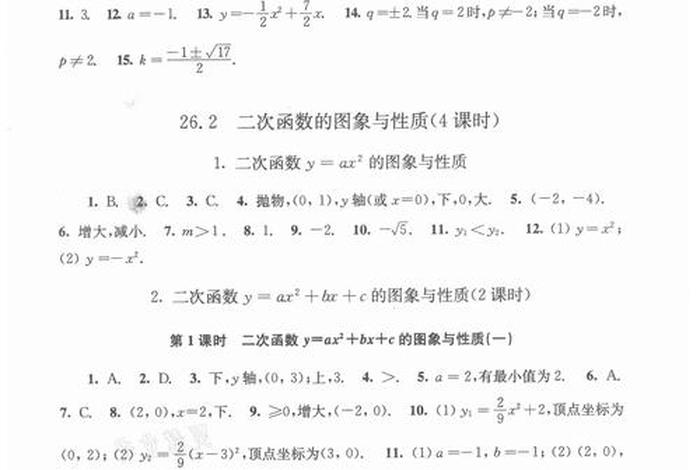 11. 3. 12. a=-1. 13. y=-1/2x²+7/2x. 14. q=±2. 当 q=2 时,p≠-2; 当 q=-2 时,
p≠2. 15. k=(-1±√17)/2.
26.2 二次函数的图象与性质(4 课时)
1. 二次函数 y=ax² 的图象与性质
1. B. 2. C. 3. C. 4. 抛物,(0, 1),y 轴(或 x=0),下,0,大. 5. (-2, -4).
6. 增大,减小. 7. m>1. 8. 1. 9. -2. 10. -√5. 11. y₁<y₂. 12. (1) y=x²;
(2) y=-x².
2. 二次函数 y=ax²+bx+c 的图象与性质(2 课时)
第 1 课时 二次函数 y=ax²+bx+c 的图象与性质(一)
1. A. 2. D. 3. 下,y 轴,(0, 3);上,3. 4. >. 5. a=2,有最小值为 2. 6. A.
7. C. 8. (2, 0),x=2,下. 9. ≥0,增大,(-2, 0). 10. (1) y₁=2/9x²+2,顶点坐标为
(0, 2); (2) y₂=2/9(x-3)²,顶点坐标为(3, 0). 11. (1) a=-1, b=-1; (2) (2, 0),